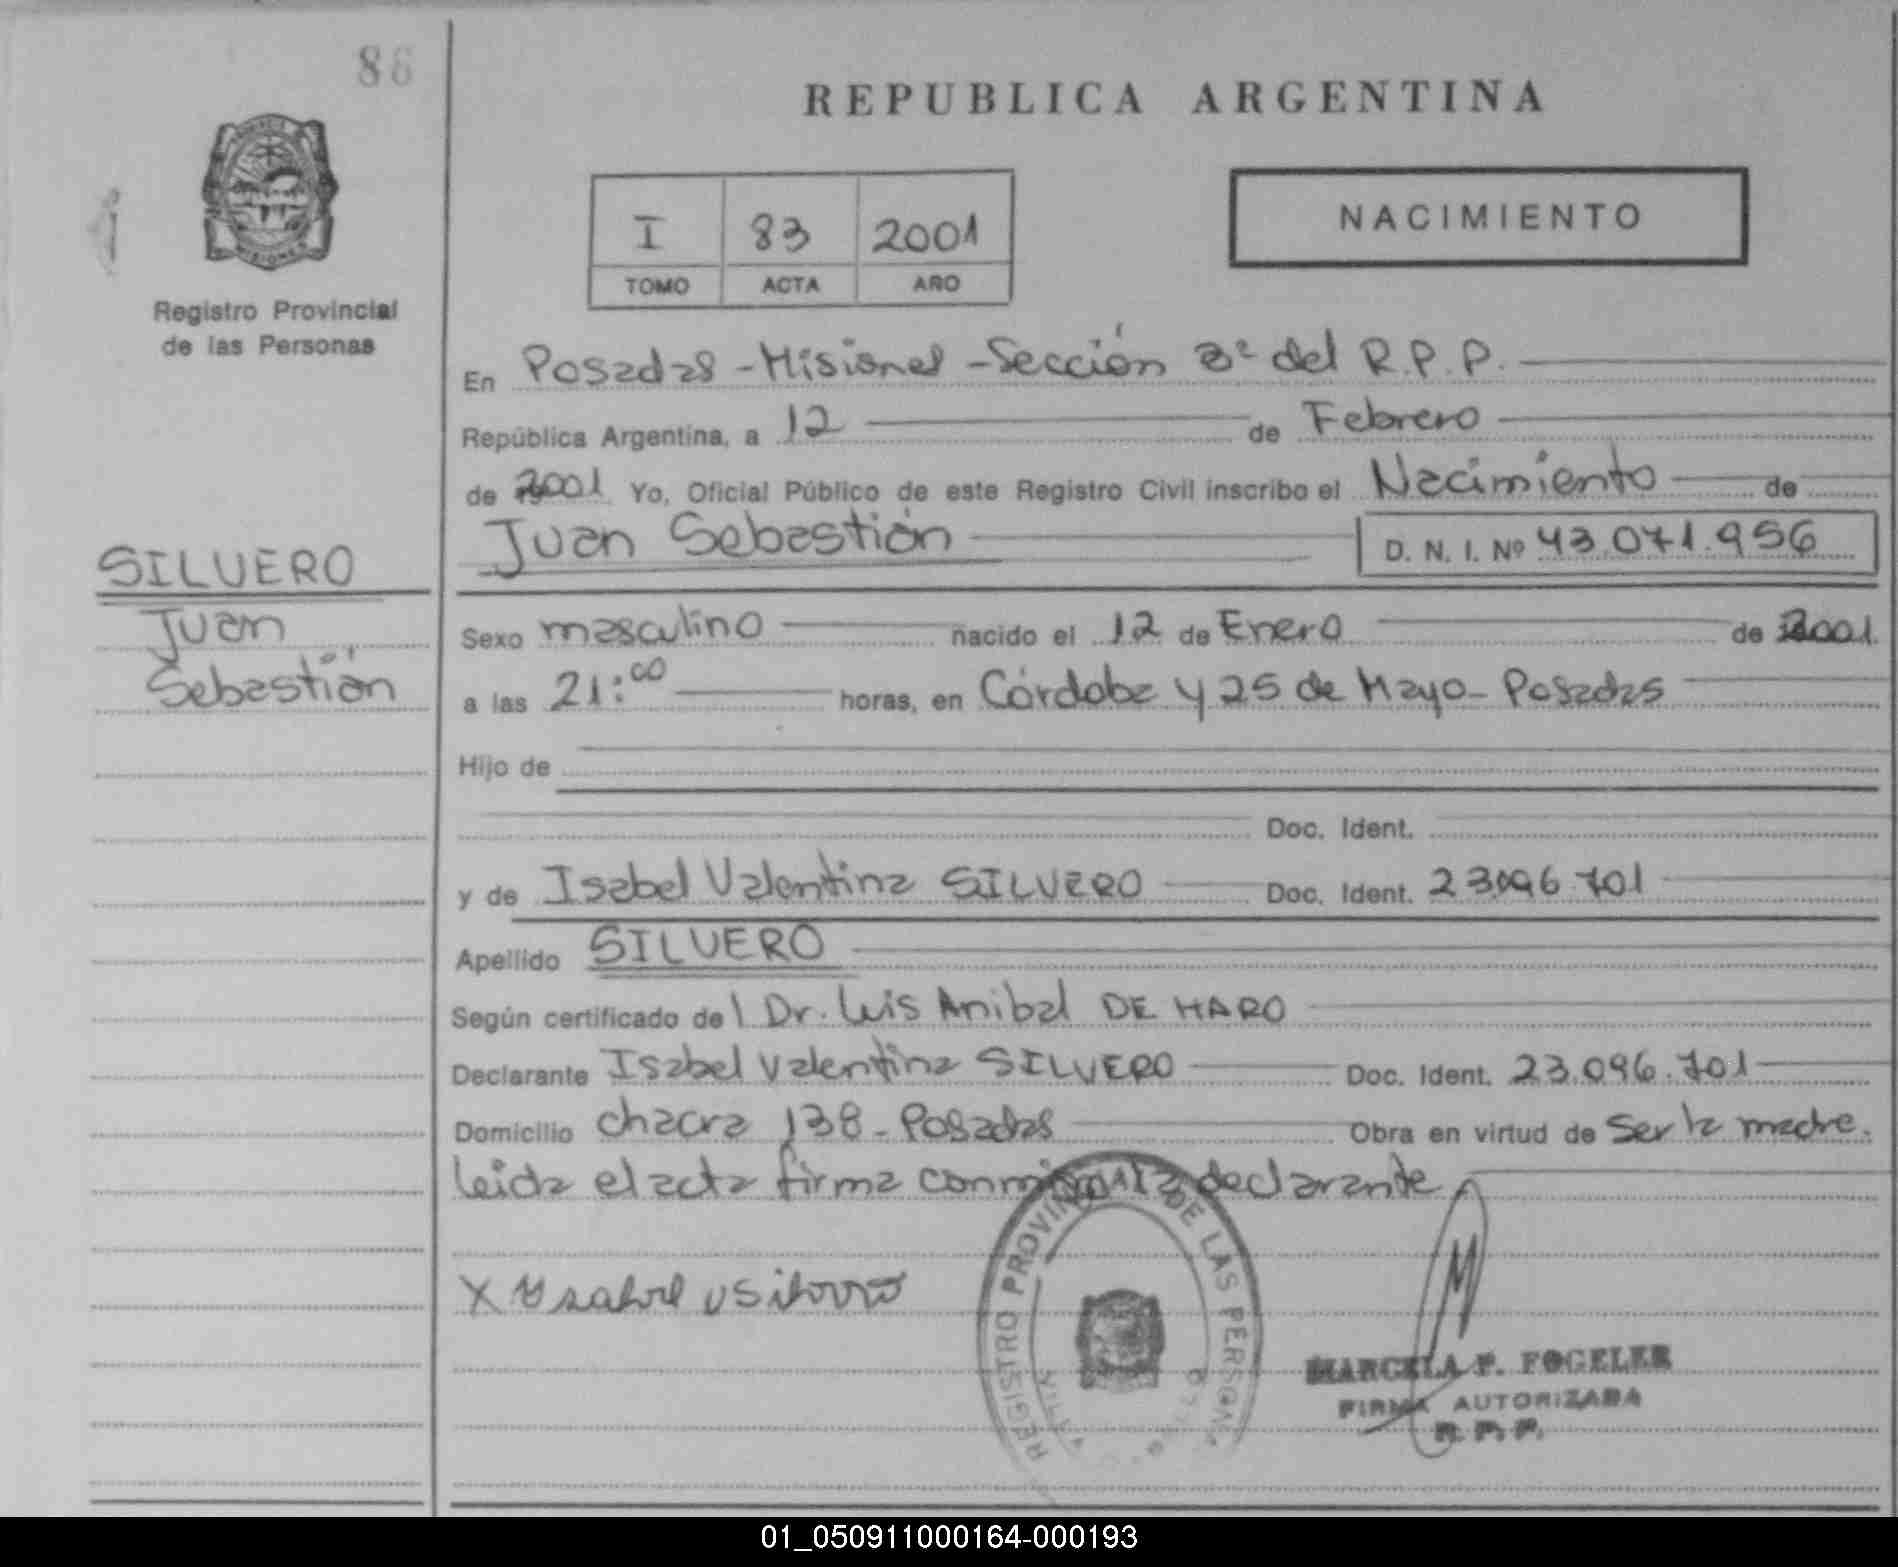 86
REPUBLICA ARGENTINA
I 83 2001
TOMO ACTA AÑO
NACIMIENTO
Registro Provincial
de las Personas
En Posadas - Misiones - Sección 3ª del R.P.P.
República Argentina, a 12 de Febrero
de 2001 Yo, Oficial Público de este Registro Civil inscribo el Nacimiento de
Juan Sebastián D. N. I. Nº 43.071.956
SILVERO
Juan
Sebastián
Sexo masculino nacido el 12 de Enero de 2001
a las 21:00 horas, en Córdoba y 25 de Mayo - Posadas
Hijo de
Doc. Ident.
y de Isabel Valentina SILVERO Doc. Ident. 23.096.701
Apellido SILVERO
Según certificado del Dr. Luis Anibal DE HARO
Declarante Isabel Valentina SILVERO Doc. Ident. 23.096.701
Domicilio Chacra 138 - Posadas Obra en virtud de ser la madre.
Leida el acta firma conmigo la declarante
REGISTRO PROVINCIAL DE LAS PERSONAS
MARCELA F. FOGELER
FIRMA AUTORIZADA
R. P. P.
01_050911000164-000193